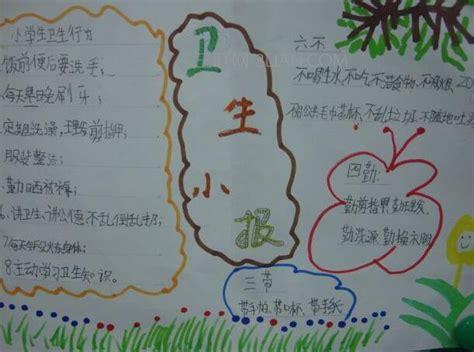 小学生卫生行为
饭前便后要洗手；
每天早晚刷牙；
定期洗澡，理发剪指甲；
服装整洁；
勤晒被褥；
6.讲卫生、讲公德不乱倒乱扔；
8.主动学习卫生知识。
卫
生
小
报
六不
不喝生水、不吃不洁食物、不
不用公共毛巾茶杯、不乱扔垃圾、不随地吐
四勤：
勤剪指甲勤理发
勤洗澡勤换衣服
三带
带手帕、带口杯、带手纸